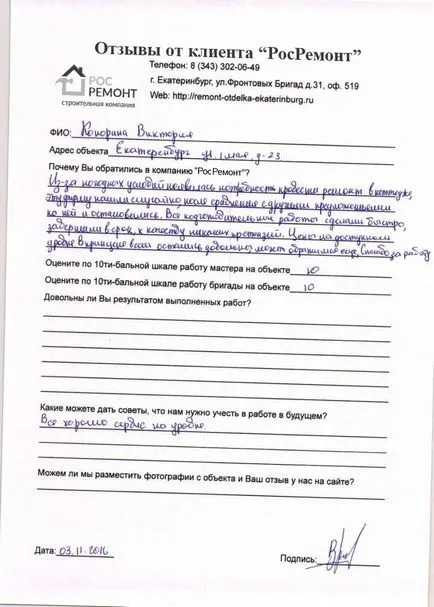 Отзывы от клиента “РосРемонт”
Телефон: 8 (343) 302-06-49
г. Екатеринбург, ул.Фронтовых Бригад д.31, оф. 519
Web: http://remont-otdelka-ekaterinburg.ru
РОС
РЕМОНТ
строительная компания
ФИО: Конорина Виктория
Адрес объекта Екатеренбург ул. 1 мая д-23
Почему Вы обратились в компанию "РосРемонт"?
Из-за погодных условий появилась потребность провести ремонт в коттедже,
эту фирму нашли случайно, после сравнения с другими предложениями
на ней и остановились. Все подготовительные работы сделали быстро,
завершили в срок, к качеству никаких претензий. Цены на доступном
уровне в принципе всем остались довольны, может обратимся ещё, спасибо за работу
Оцените по 10ти-бальной шкале работу мастера на объекте 10
Оцените по 10ти-бальной шкале работу бригады на объекте 10
Довольны ли Вы результатом выполненных работ?
Какие можете дать советы, что нам нужно учесть в работе в будущем?
Все хорошо сервис на уровне.
Можем ли мы разместить фотографии с объекта и Ваш отзыв у нас на сайте?
Дата: 03.11.2016
Подпись: